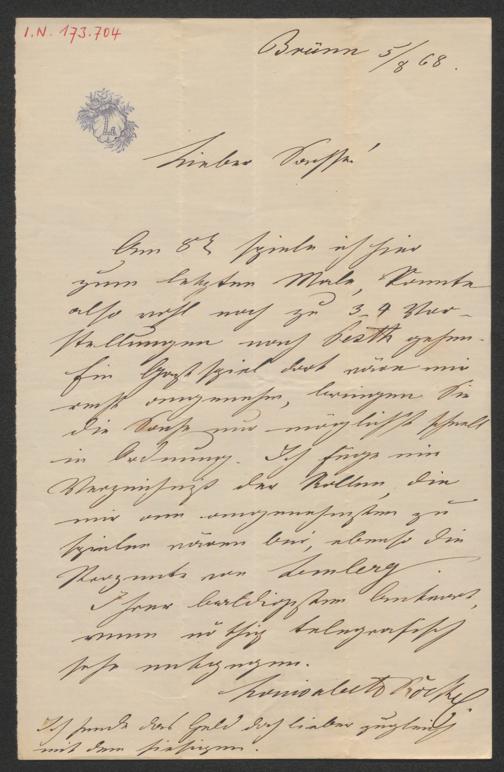 I.N. 173.704
Brünn 5/8 68.
Lieber Sachse!
Am 8t spiele ich hier
zum letzten Male, könnte
also wohl noch zu 3_4 Vor-
stellungen nach Pesth gehen.
Ein Gastspiel dort wäre mir
recht angenehm, bringen Sie
die Sache nur möglichst schnell
in Ordnung. Ich füge ein
Verzeichniß der Rollen, die
mir am angenehmsten zu
spielen wären bei, ebenso die
von Lemberg.
Ihrer baldigsten Antwort,
wenn nöthig telegrafisch
sehe entgegen.
Ich sende das Geld doch lieber zugleich
mit dem hiesigen.